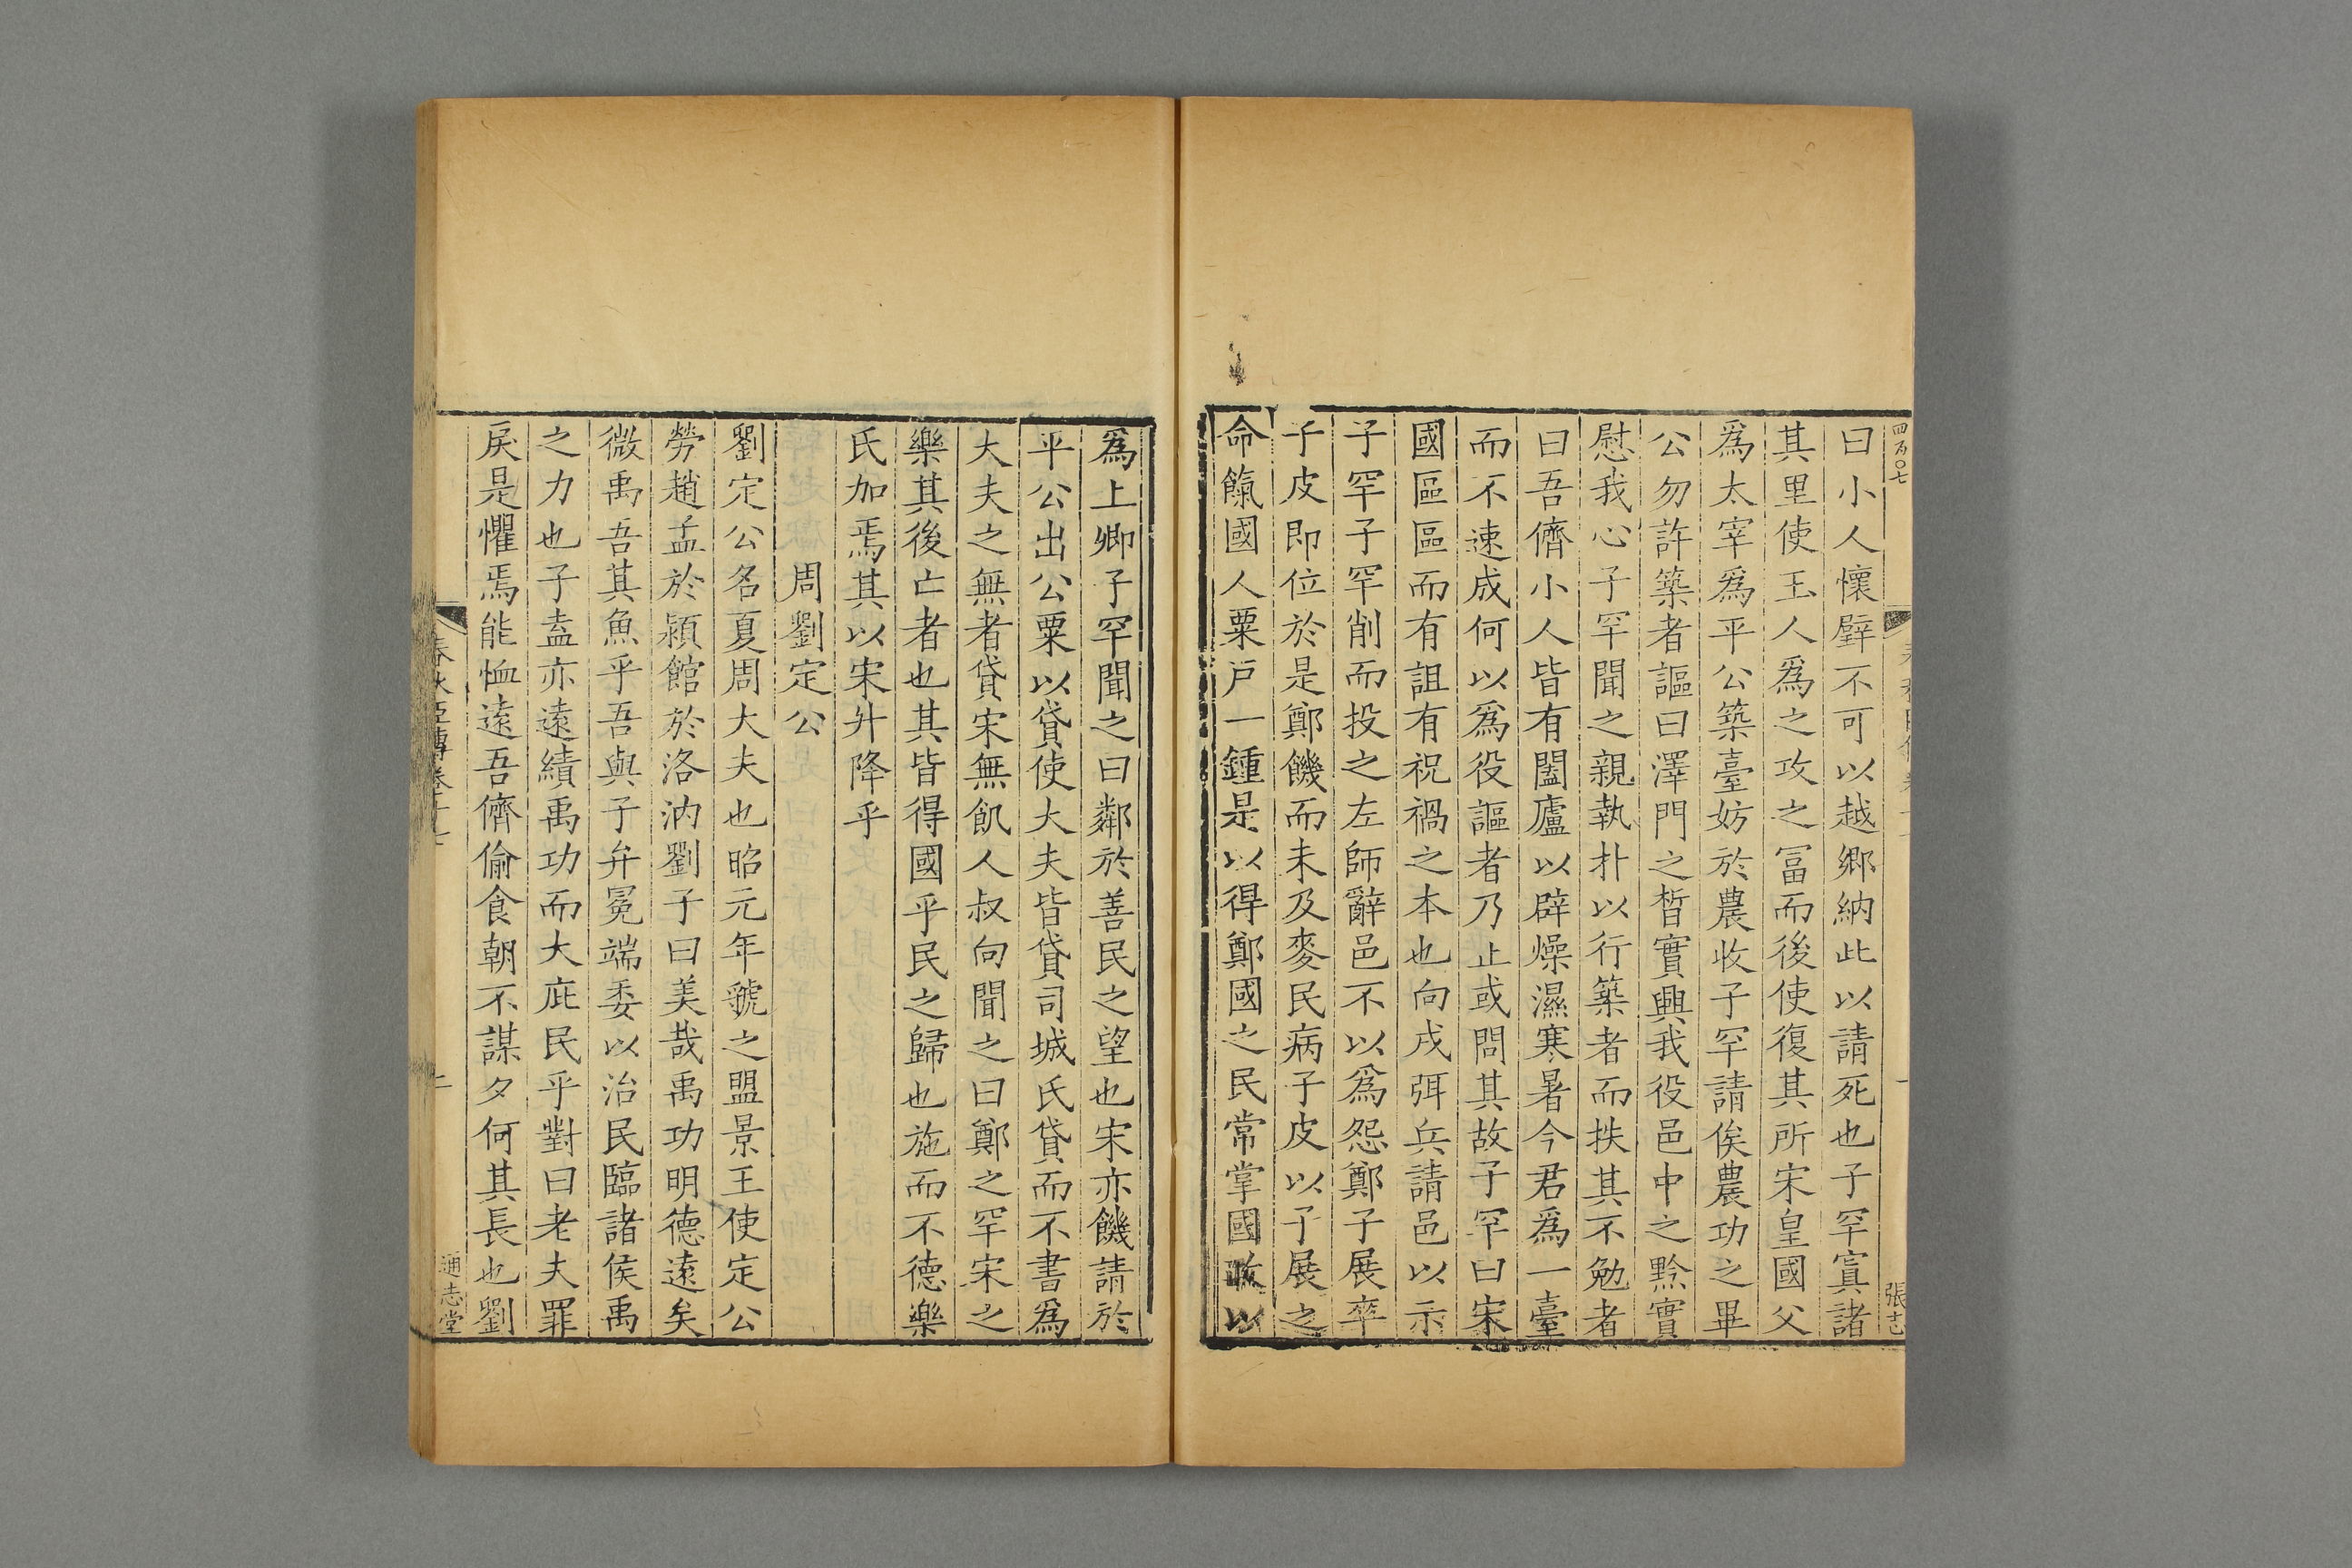 四百〇七
張志
曰小人懷璧不可以越鄉納此以請死也子罕寘諸
其里使玉人爲之攻之冨而後使復其所宋皇國父
爲太宰爲平公築臺妨於農收子罕請俟農功之畢
公勿許築者謳曰澤門之晳實興我役邑中之黔實
慰我心子罕聞之親執扑以行築者而抶其不勉者
曰吾儕小人皆有闔廬以辟燥濕寒暑今君爲一臺
而不速成何以爲役謳者乃止或問其故子罕曰宋
國區區而有詛有祝禍之本也向戌弭兵請邑以示
子罕子罕削而投之左師辭邑不以爲怨鄭子展卒
子皮即位於是鄭饑而未及麥民病子皮以子展之
命餼國人粟戸一鍾是以得鄭國之民常掌國政以
爲上卿子罕聞之曰鄰於善民之望也宋亦饑請於
平公出公粟以貸使大夫皆貸司城氏貸而不書爲
大夫之無者貸宋無飢人叔向聞之曰鄭之罕宋之
樂其後亡者也其皆得國乎民之歸也施而不德樂
氏加焉其以宋升降乎
周劉定公
劉定公名夏周大夫也昭元年虢之盟景王使定公
勞趙孟於潁館於洛汭劉子曰美哉禹功明德遠矣
微禹吾其魚乎吾與子弁冕端委以治民臨諸侯禹
之力也子盍亦遠績禹功而大庇民乎對曰老夫罪
戾是懼焉能恤遠吾儕偷食朝不謀夕何其長也劉
春秋臣傳卷二十七
二
通志堂